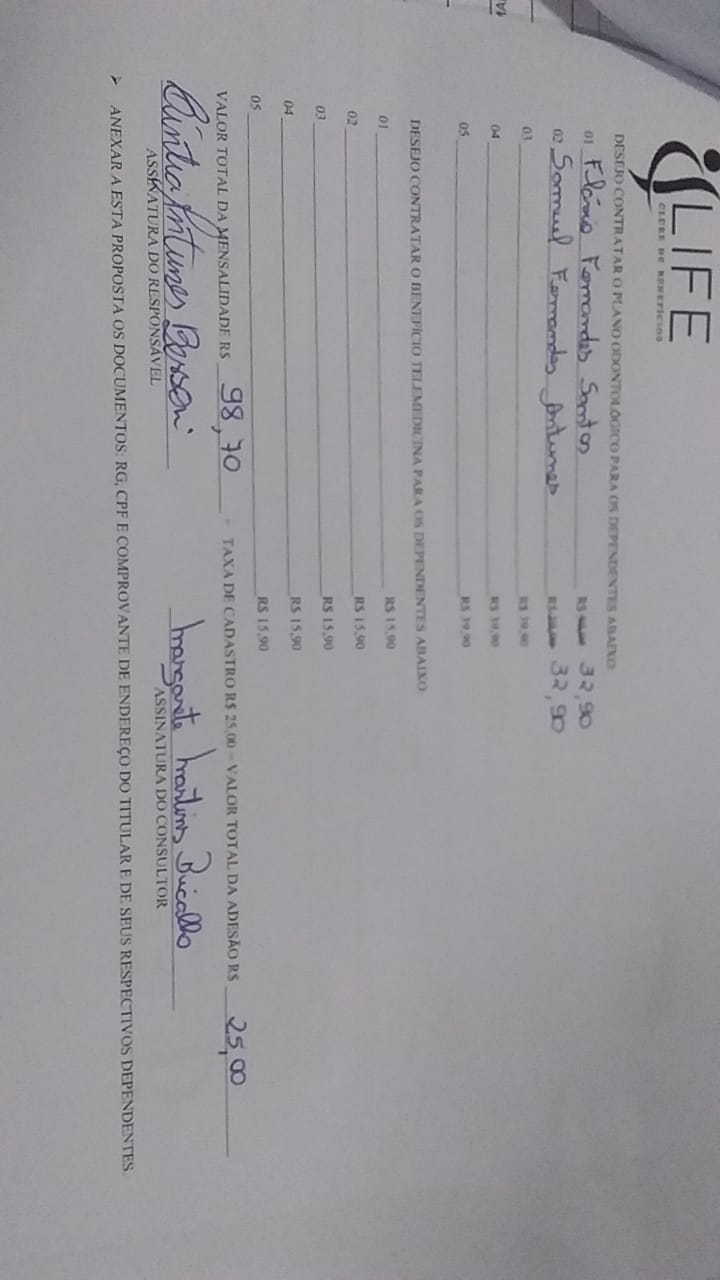 LIFE
CLUBE DE BENEFÍCIOS
DESEJO CONTRATAR O PLANO ODONTOLÓGICO PARA OS DEPENDENTES ABAIXO:
01 Flávio Fernandes Santos R$ 32,90
02 Samuel Fernandes Antunes R$ 32,90
03 R$ 39,90
04 R$ 39,90
05 R$ 39,90
DESEJO CONTRATAR O BENEFÍCIO TELEMEDICINA PARA OS DEPENDENTES ABAIXO
01 R$ 15,90
02 R$ 15,90
03 R$ 15,90
04 R$ 15,90
05 R$ 15,90
VALOR TOTAL DA MENSALIDADE R$ 98,70 + TAXA DE CADASTRO R$ 25,00 = VALOR TOTAL DA ADESÃO R$ 25,00
Cíntia Antunes Margarete Martins Bicalho
ASSINATURA DO RESPONSÁVEL ASSINATURA DO CONSULTOR
➤ ANEXAR A ESTA PROPOSTA OS DOCUMENTOS: RG, CPF E COMPROVANTE DE ENDEREÇO DO TITULAR E DE SEUS RESPECTIVOS DEPENDENTES.